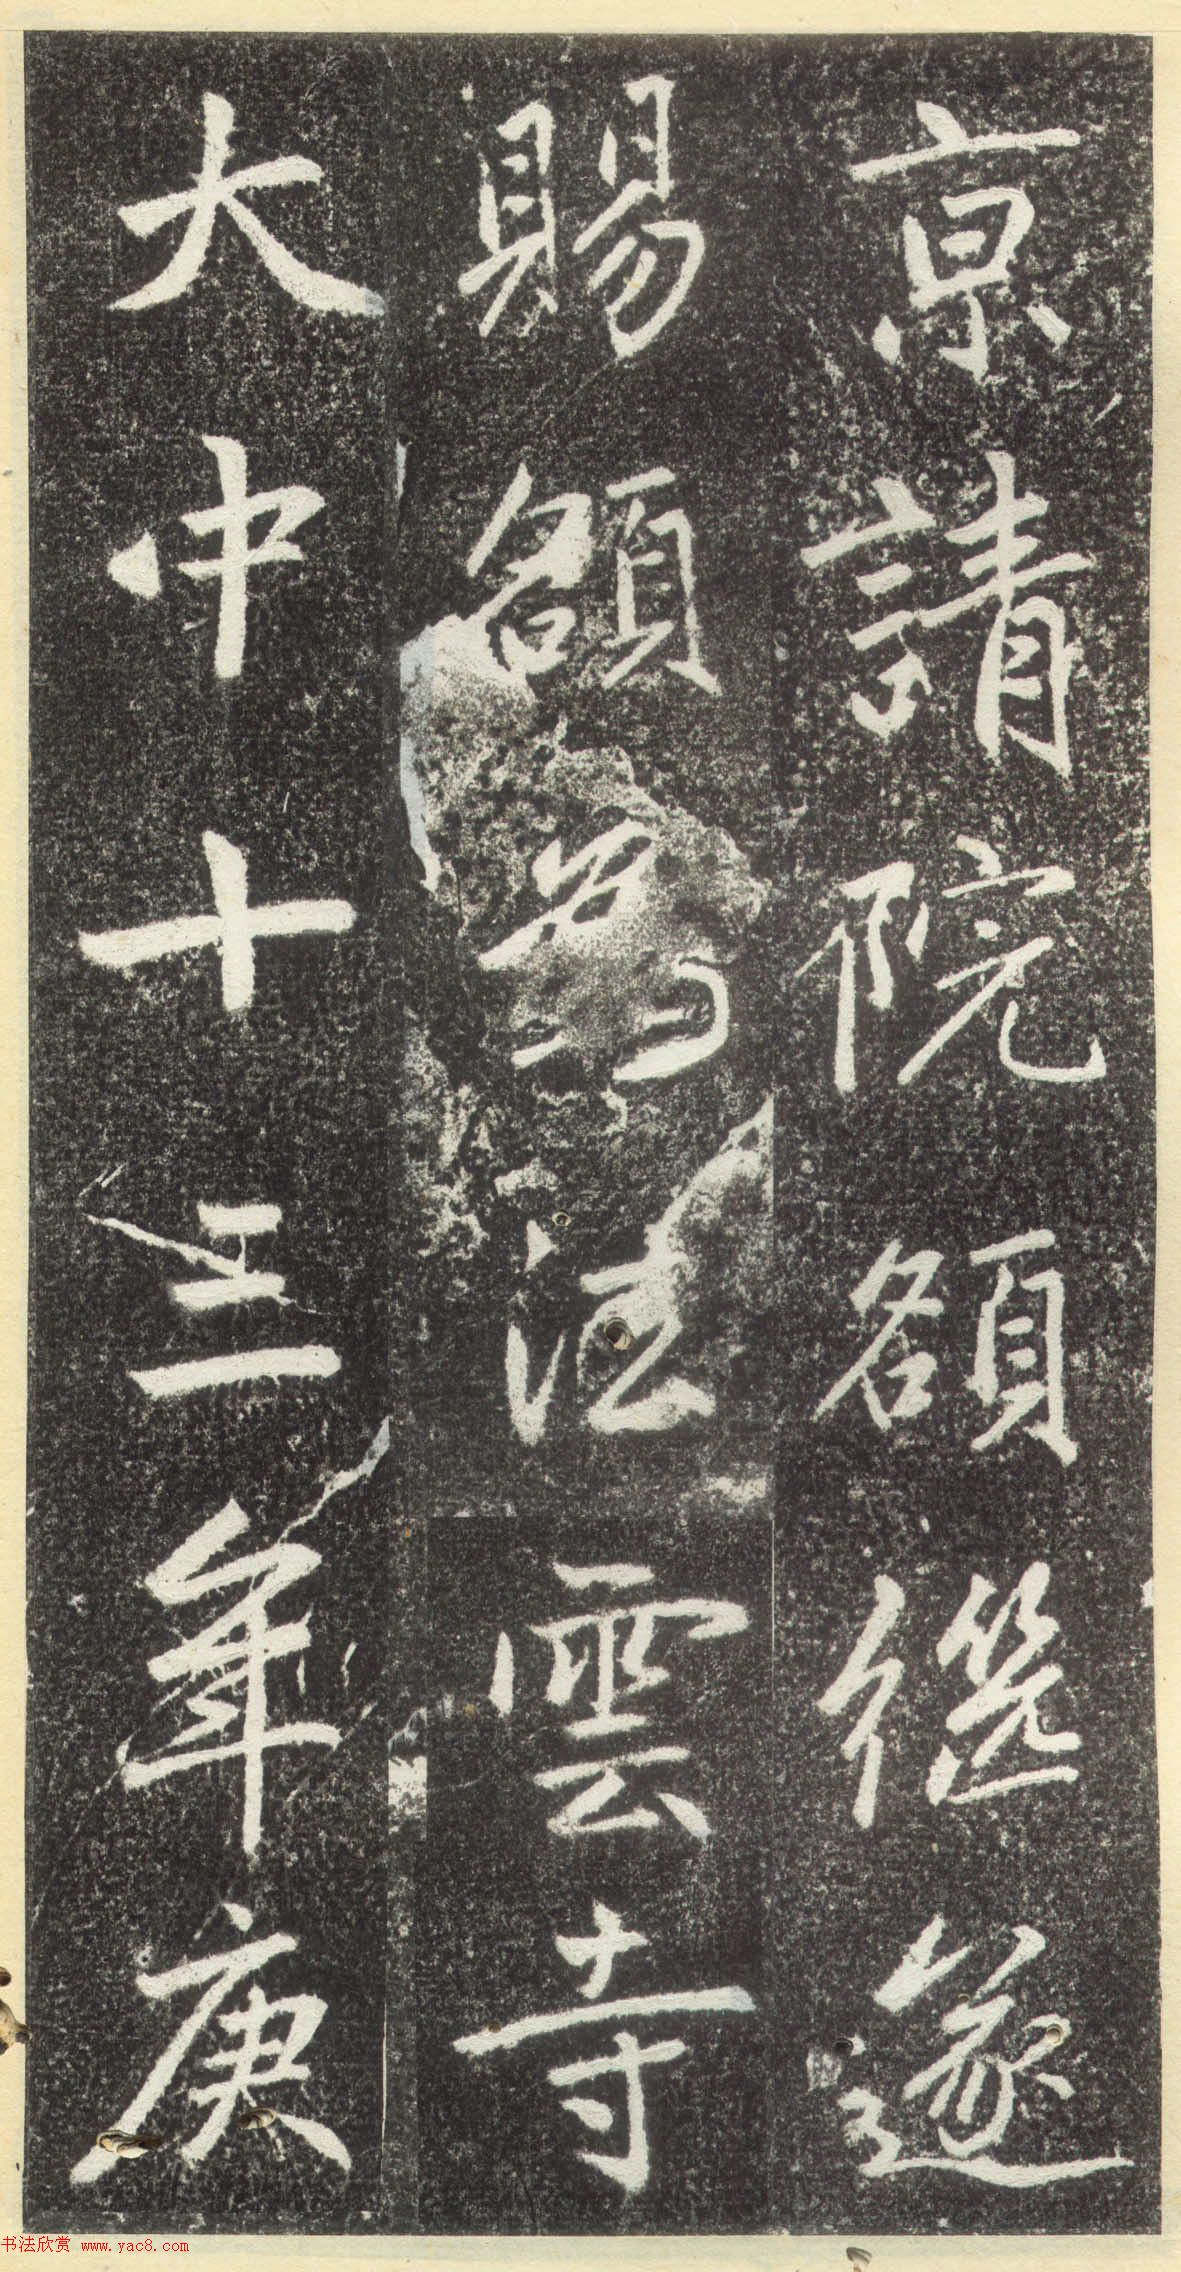 京請院額遂
賜額為法雲寺
大中十三年庚
书法欣赏 www.yac8.com